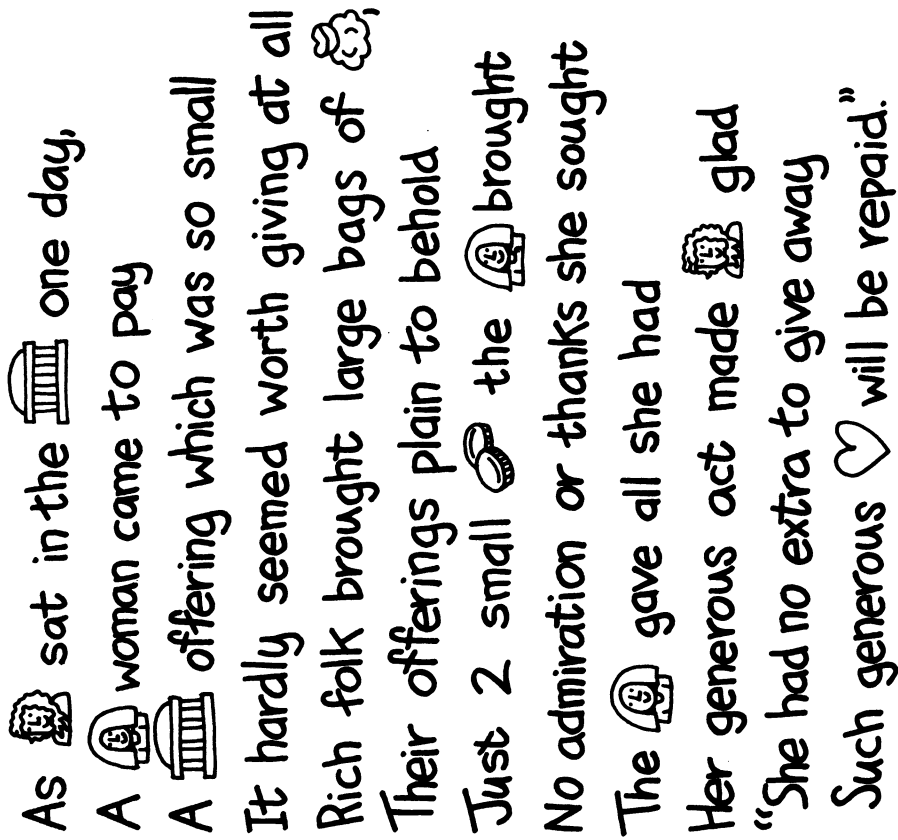 As sat in the one day,
A woman came to pay
A offering which was so small
It hardly seemed worth giving at all
Rich folk brought large bags of ,
Their offerings plain to behold
Just 2 small the brought
No admiration or thanks she sought
The gave all she had
Her generous act made glad
“She had no extra to give away
Such generous will be repaid.”